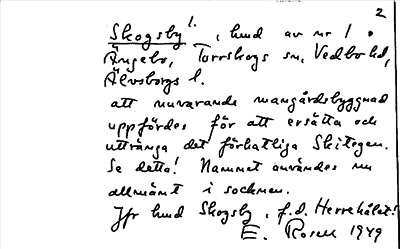 2
Skogsby!, hmd av nr 1 o
Ängebo, Torrskogs sn, Vedbo hd,
Älvsborgs l.
att nuvarande mangårdsbyggnad
uppfördes för att ersätta och
uttränga det förhatliga Skitegen.
Se detta! Namnet användes nu
allmänt i socknen.
Jfr hmd Skogsby, f.d. Herrehålet!
E. Rosell 1949